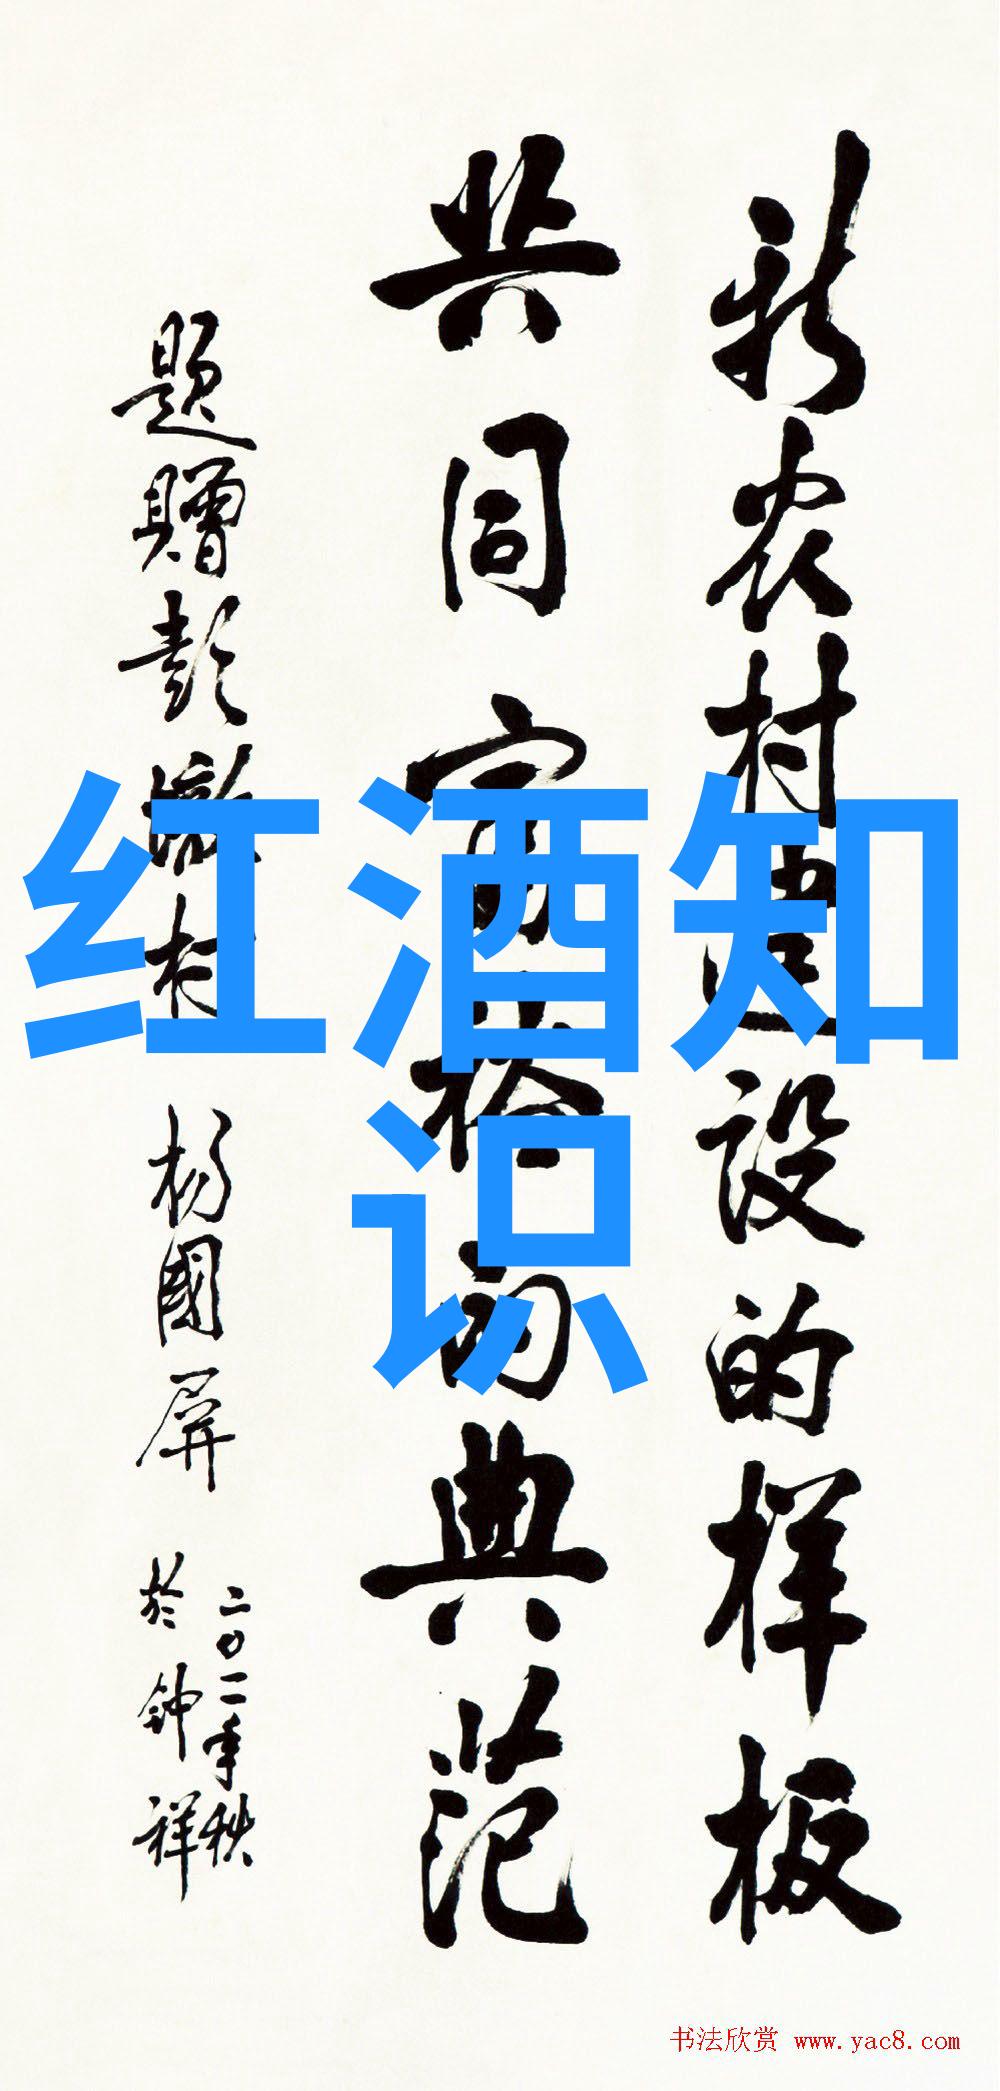 新农村建设的样板
共同富裕的典范
题赠彭墩村 杨國屏
二〇一一年秋
於钟祥
红酒知
识
书法欣赏 www.yac8.com